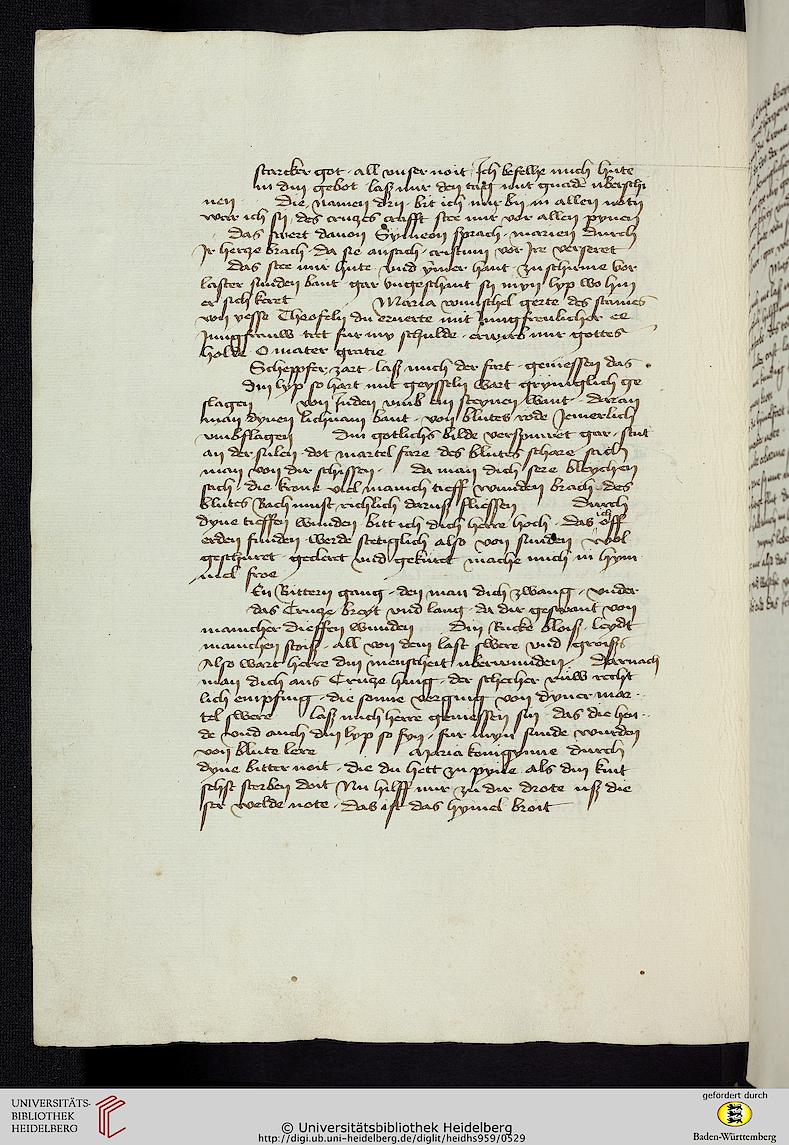 starcker got · all vnser noit Ich befelhe mich hute
in din gebot · laß mir den tag mit gnade vberschi
nen Die namen dri · bit ich mir bij in allen noten
wer ich sy · des cruczes crafft stee mir vor allen pynen
· das swert dauon Symeon sprach · marien durch
Jr hercze brach · da sie ansach · cristum vor Jre verseret
das stee mir hute · vnd ymer hant · zu schirme vor
laster sunden bant · gar vngeschant sy myn lyp wo hin
er sich keret Maria wunschel gerte des stames
von yesse Theofeln du ernerte mit Jungfreulicher ee
Jungfrauw trit fur my schulde · erwirb mir gottes
holde O mater gratie
Scheppfer zart · laß mich der fart · geniessen das ·
din lyp so hart mit geysseln wart grymiglich ge
slagen von Juden vmb ein steynen want · daran
man dynen lichnam bant · von blutes rode Jemerlich
vmbslagen Din gotlichs bilde verspurret gar · stut
an der sulen · dot martel fare des blutes schare · sach
man von dir schissen · da man dich sere bleychen
sach · die krone viel manich tieff wunden brach · des
blutes bach must richlich daruß fliessen Durch
dyne tieffen wunden · bitt ich dich herre hoch · das ich off
erden funden werde stetiglich also von sunden wol
geschuret · geclert vnd gekuret mache mich in hym
mel froe
En bittern gang · den man dich zwang · vnder
das Crucze breyt vnd lang · da dir gewant von
mancher dieffen wunden Din Rucke bloiß · leydt
manchen stoiß · all von dem last swere vnd groiß
Also wart herre din menscheit vberwunden · Darnach
man dich ans Crucze hing · der schecher ruw recht
lich empfing · die sonne verging von dyner mar ·
tel swere laß mich herre geniessen sin · das die hen ·
de vnd auch din lyp so fyn · fur myn sunde wurden
von blute lere Maria konigynne durch
dyne bitter noit · die du hett zu pyne als din kint
sehst sterben doit Nu hilff mir zu dir drote uß die
ser welde note · das ist das hymel broit
UNIVERSITÄTS-
BIBLIOTHEK
HEIDELBERG
© Universitätsbibliothek Heidelberg
http://digi.ub.uni-heidelberg.de/diglit/heidhs959/0529
gefördert durch
Baden-Württemberg